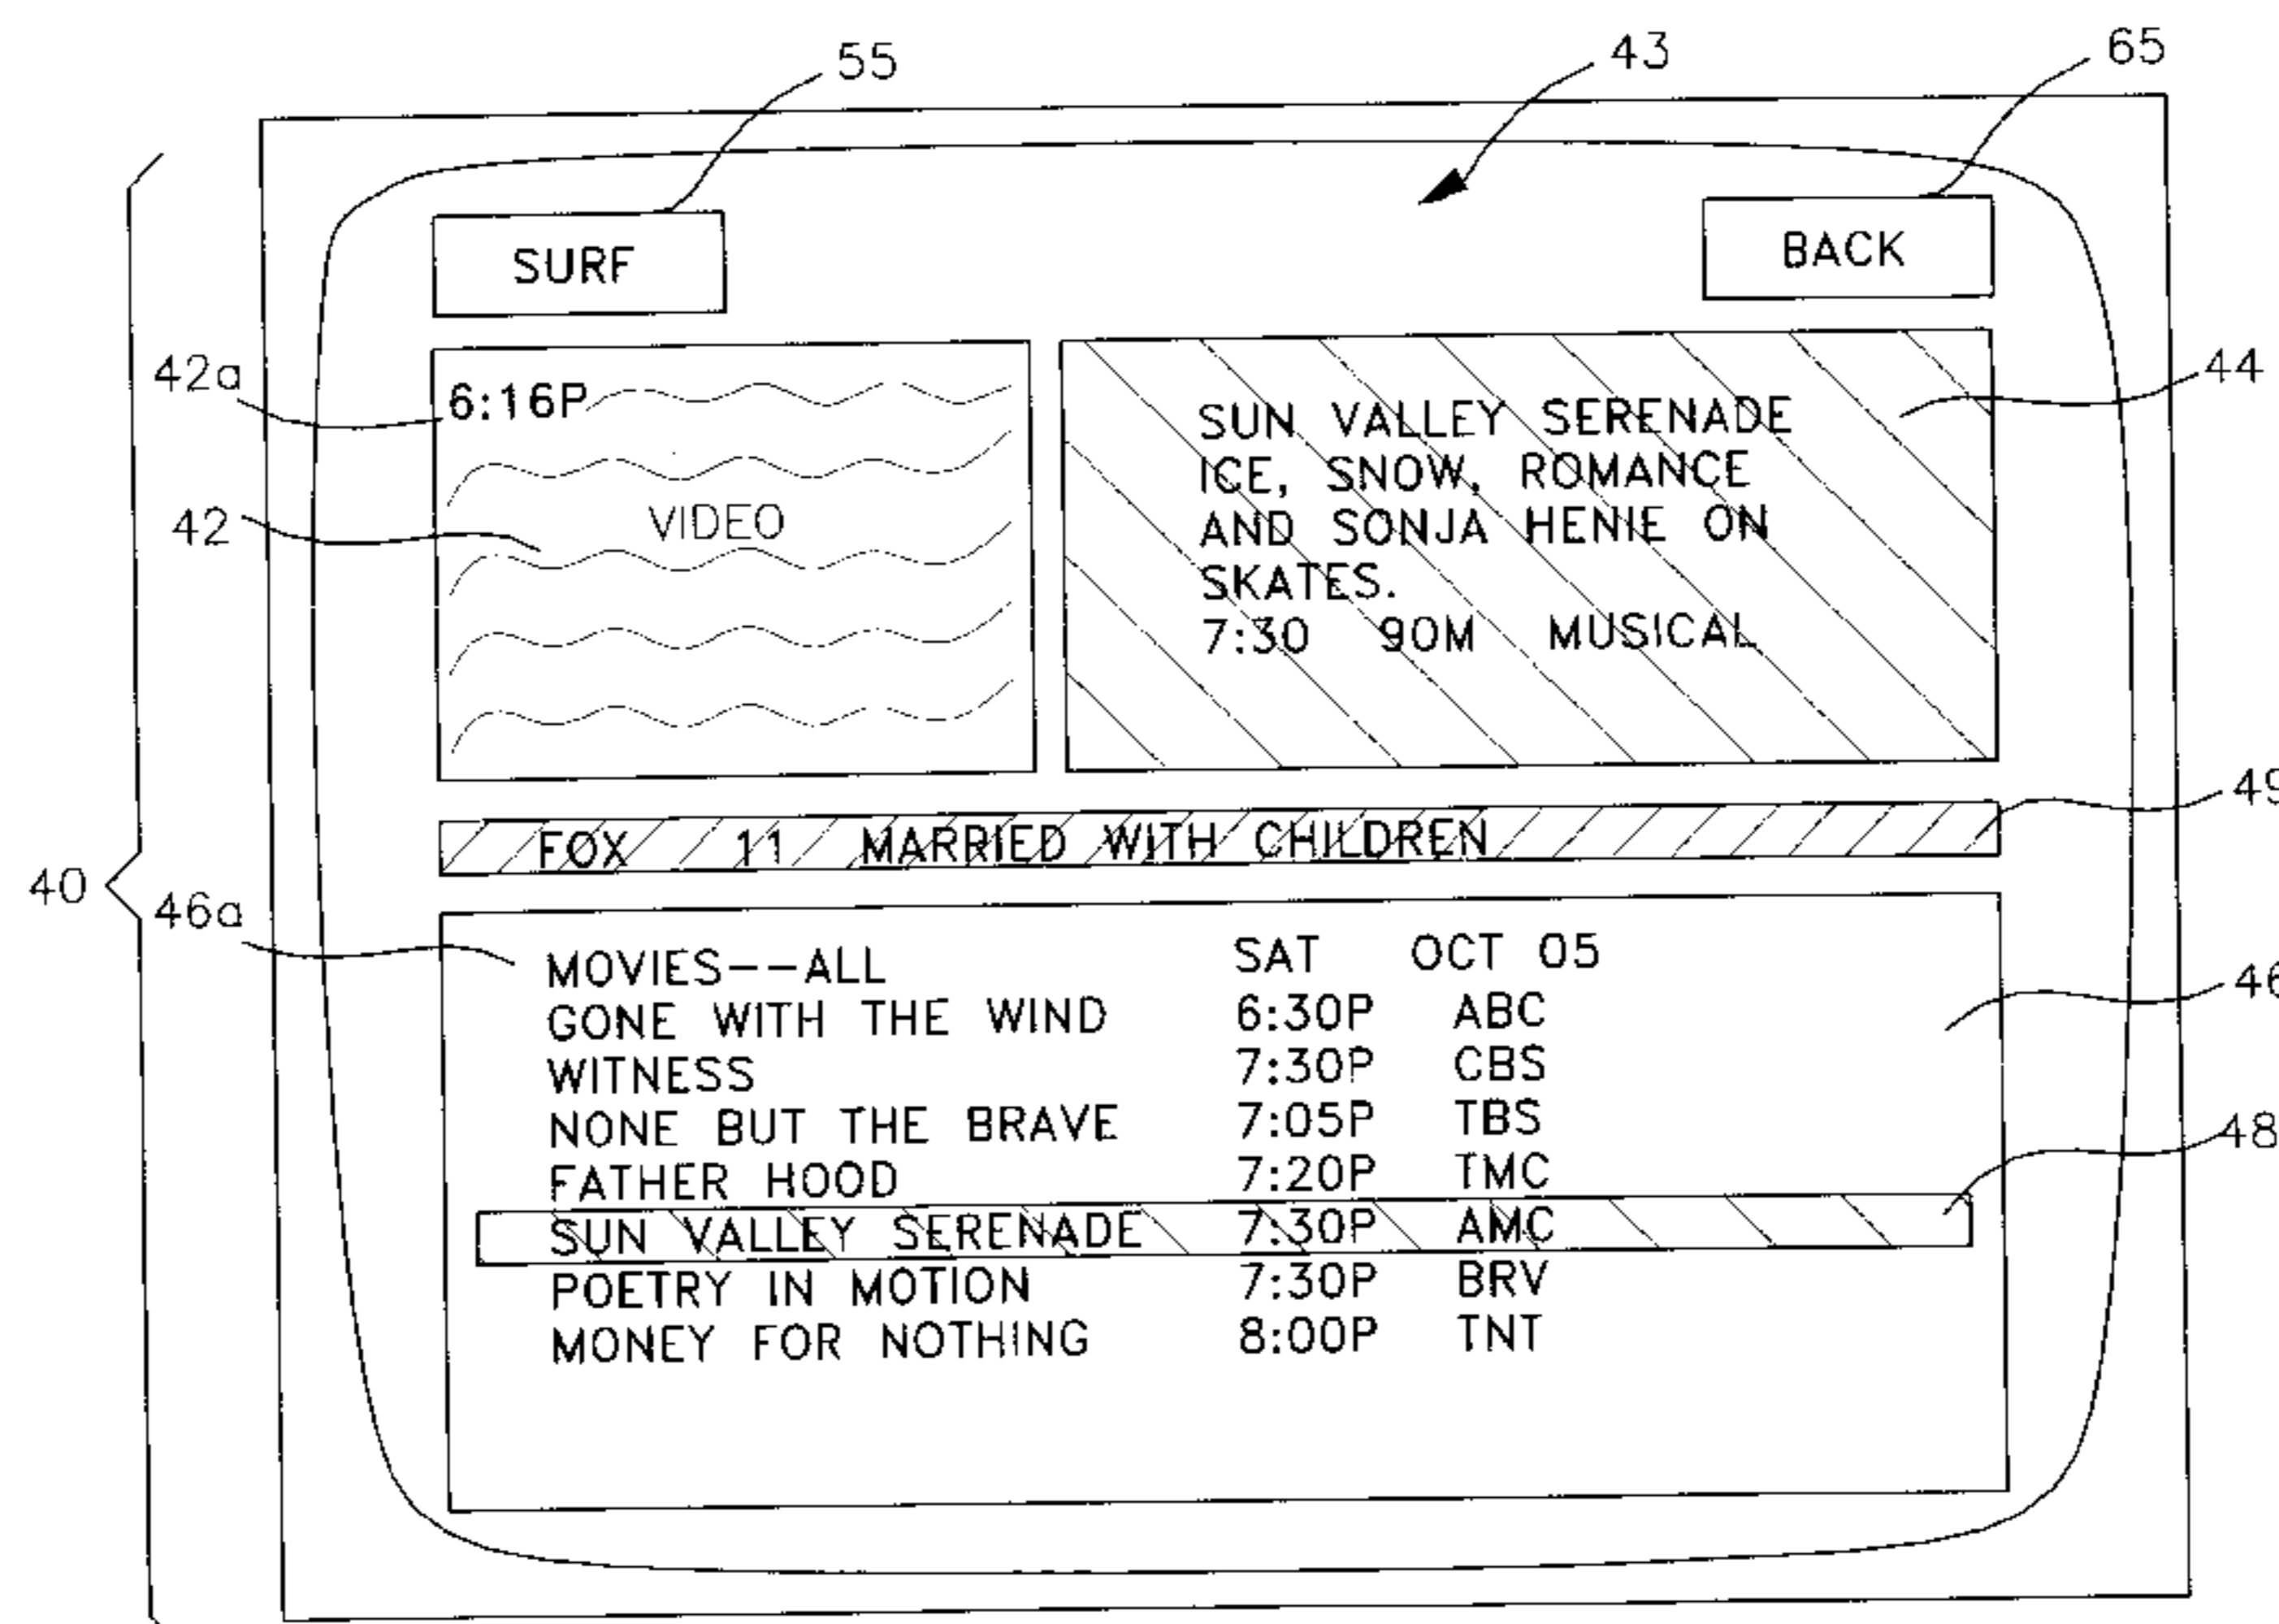 55
43
65
SURF
BACK
42a
6:16P
44
SUN VALLEY SERENADE
ICE, SNOW, ROMANCE
AND SONJA HENIE ON
SKATES.
7:30 90M MUSICAL
42
VIDEO
49
FOX 11 MARRIED WITH CHILDREN
40
46a
MOVIES--ALL SAT OCT 05
46
GONE WITH THE WIND 6:30P ABC
WITNESS 7:30P CBS
NONE BUT THE BRAVE 7:05P TBS
48
FATHER HOOD 7:20P TMC
SUN VALLEY SERENADE 7:30P AMC
POETRY IN MOTION 7:30P BRV
MONEY FOR NOTHING 8:00P TNT